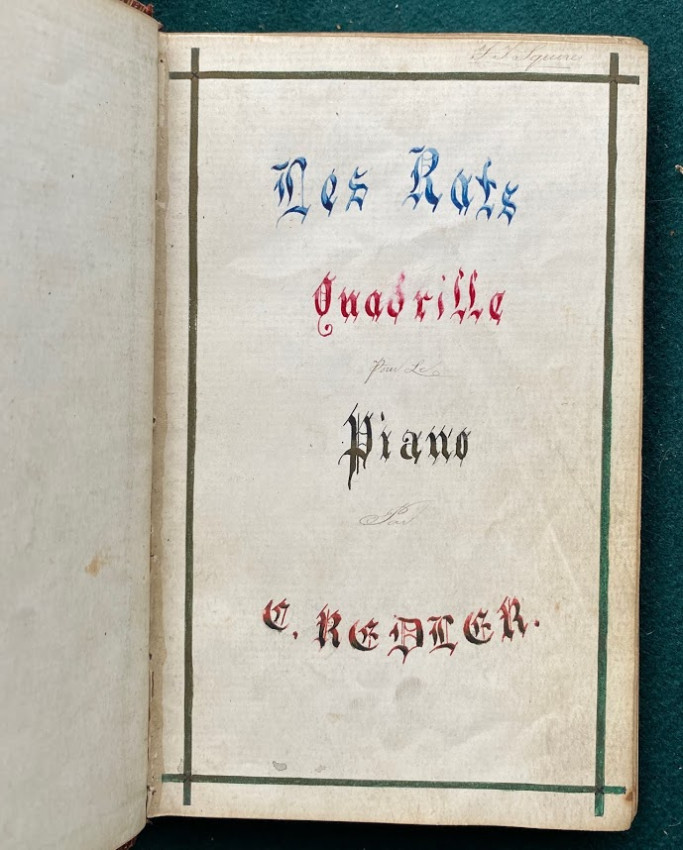 Les Rats
Quadrille
Pour Le
Piano
Par
C. REDLER.